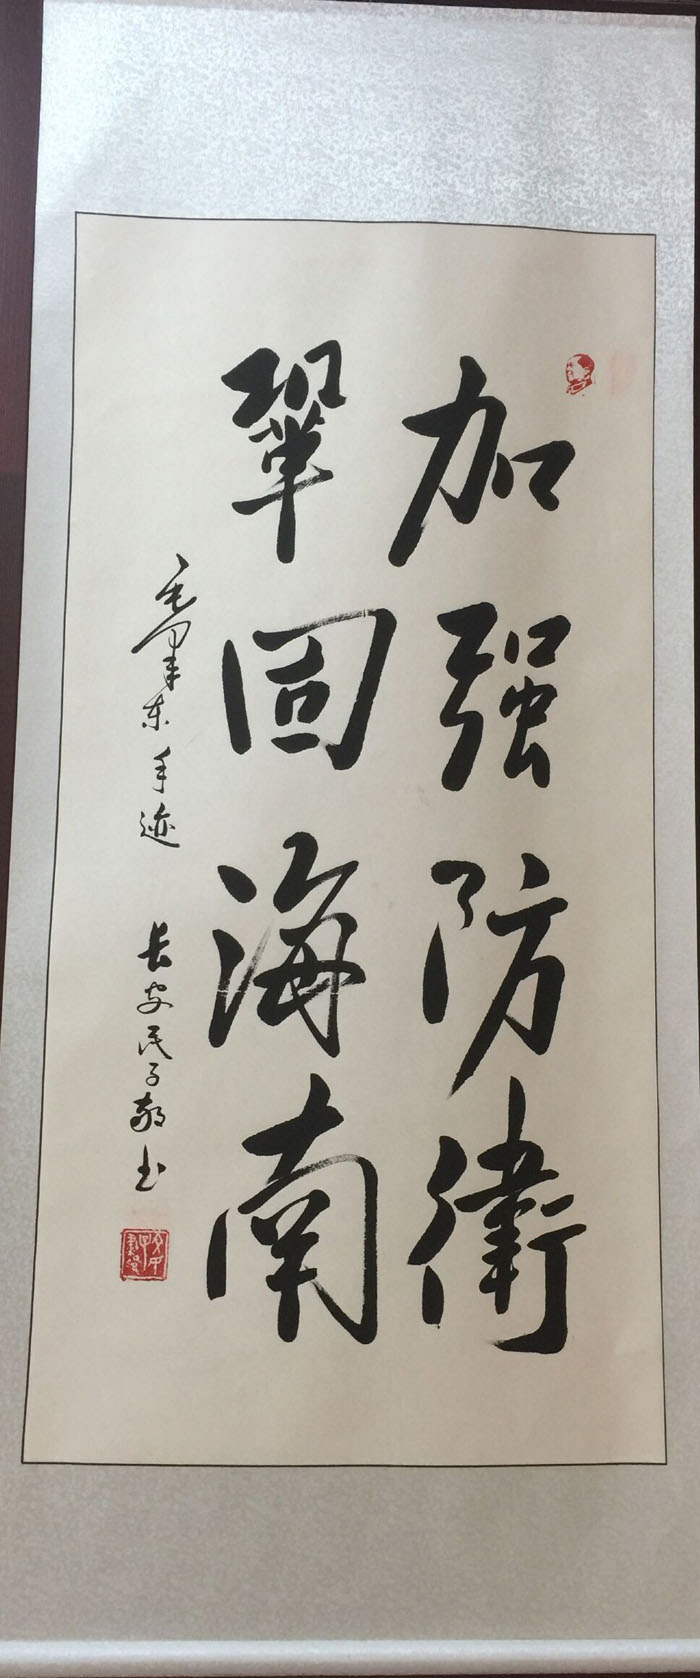 加强防衛
鞏固海南
毛泽东手迹
长安民子敬书